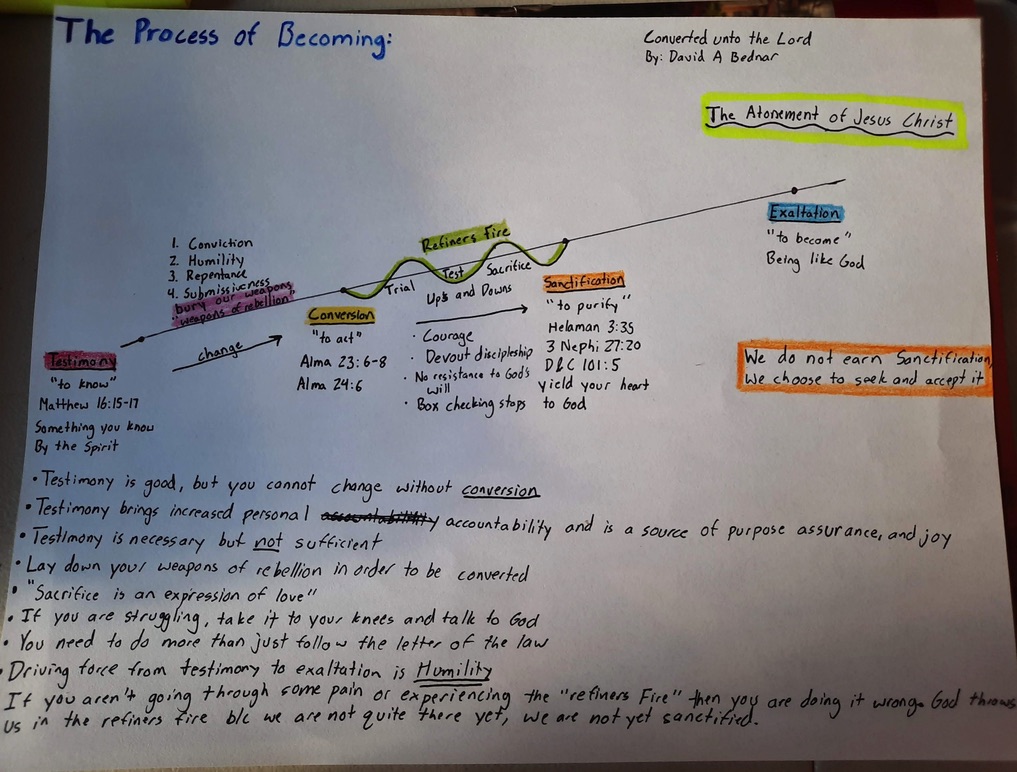 The Process of Becoming:
Converted unto the Lord
By: David A Bednar
The Atonement of Jesus Christ
Exaltation
"to become"
Being like God
1. Conviction
2. Humility
3. Repentance
4. Submissiveness
bury our weapons
"weapons of rebellion"
change
Refiners Fire
Trial
Test
Sacrifice
Ups and Downs
Testimony
"to know"
Matthew 16:15-17
Something you know
By the Spirit
Conversion
"to act"
Alma 23:6-8
Alma 24:6
· Courage
· Devout discipleship
· No resistance to God's
will
· Box checking stops
Sanctification
"to purify"
Helaman 3:35
3 Nephi 27:20
D&C 101:5
yield your heart
to God
We do not earn Sanctification,
We choose to seek and accept it
• Testimony is good, but you cannot change without conversion
• Testimony brings increased personal accountability and is a source of purpose assurance, and joy
• Testimony is necessary but not sufficient
• Lay down your weapons of rebellion in order to be converted
• "Sacrifice is an expression of love"
• If you are struggling, take it to your knees and talk to God
• You need to do more than just follow the letter of the law
• Driving force from testimony to exaltation is Humility
If you aren't going through some pain or experiencing the "refiners Fire" then you are doing it wrong. God throws
us in the refiners fire b/c we are not quite there yet, we are not yet sanctified.